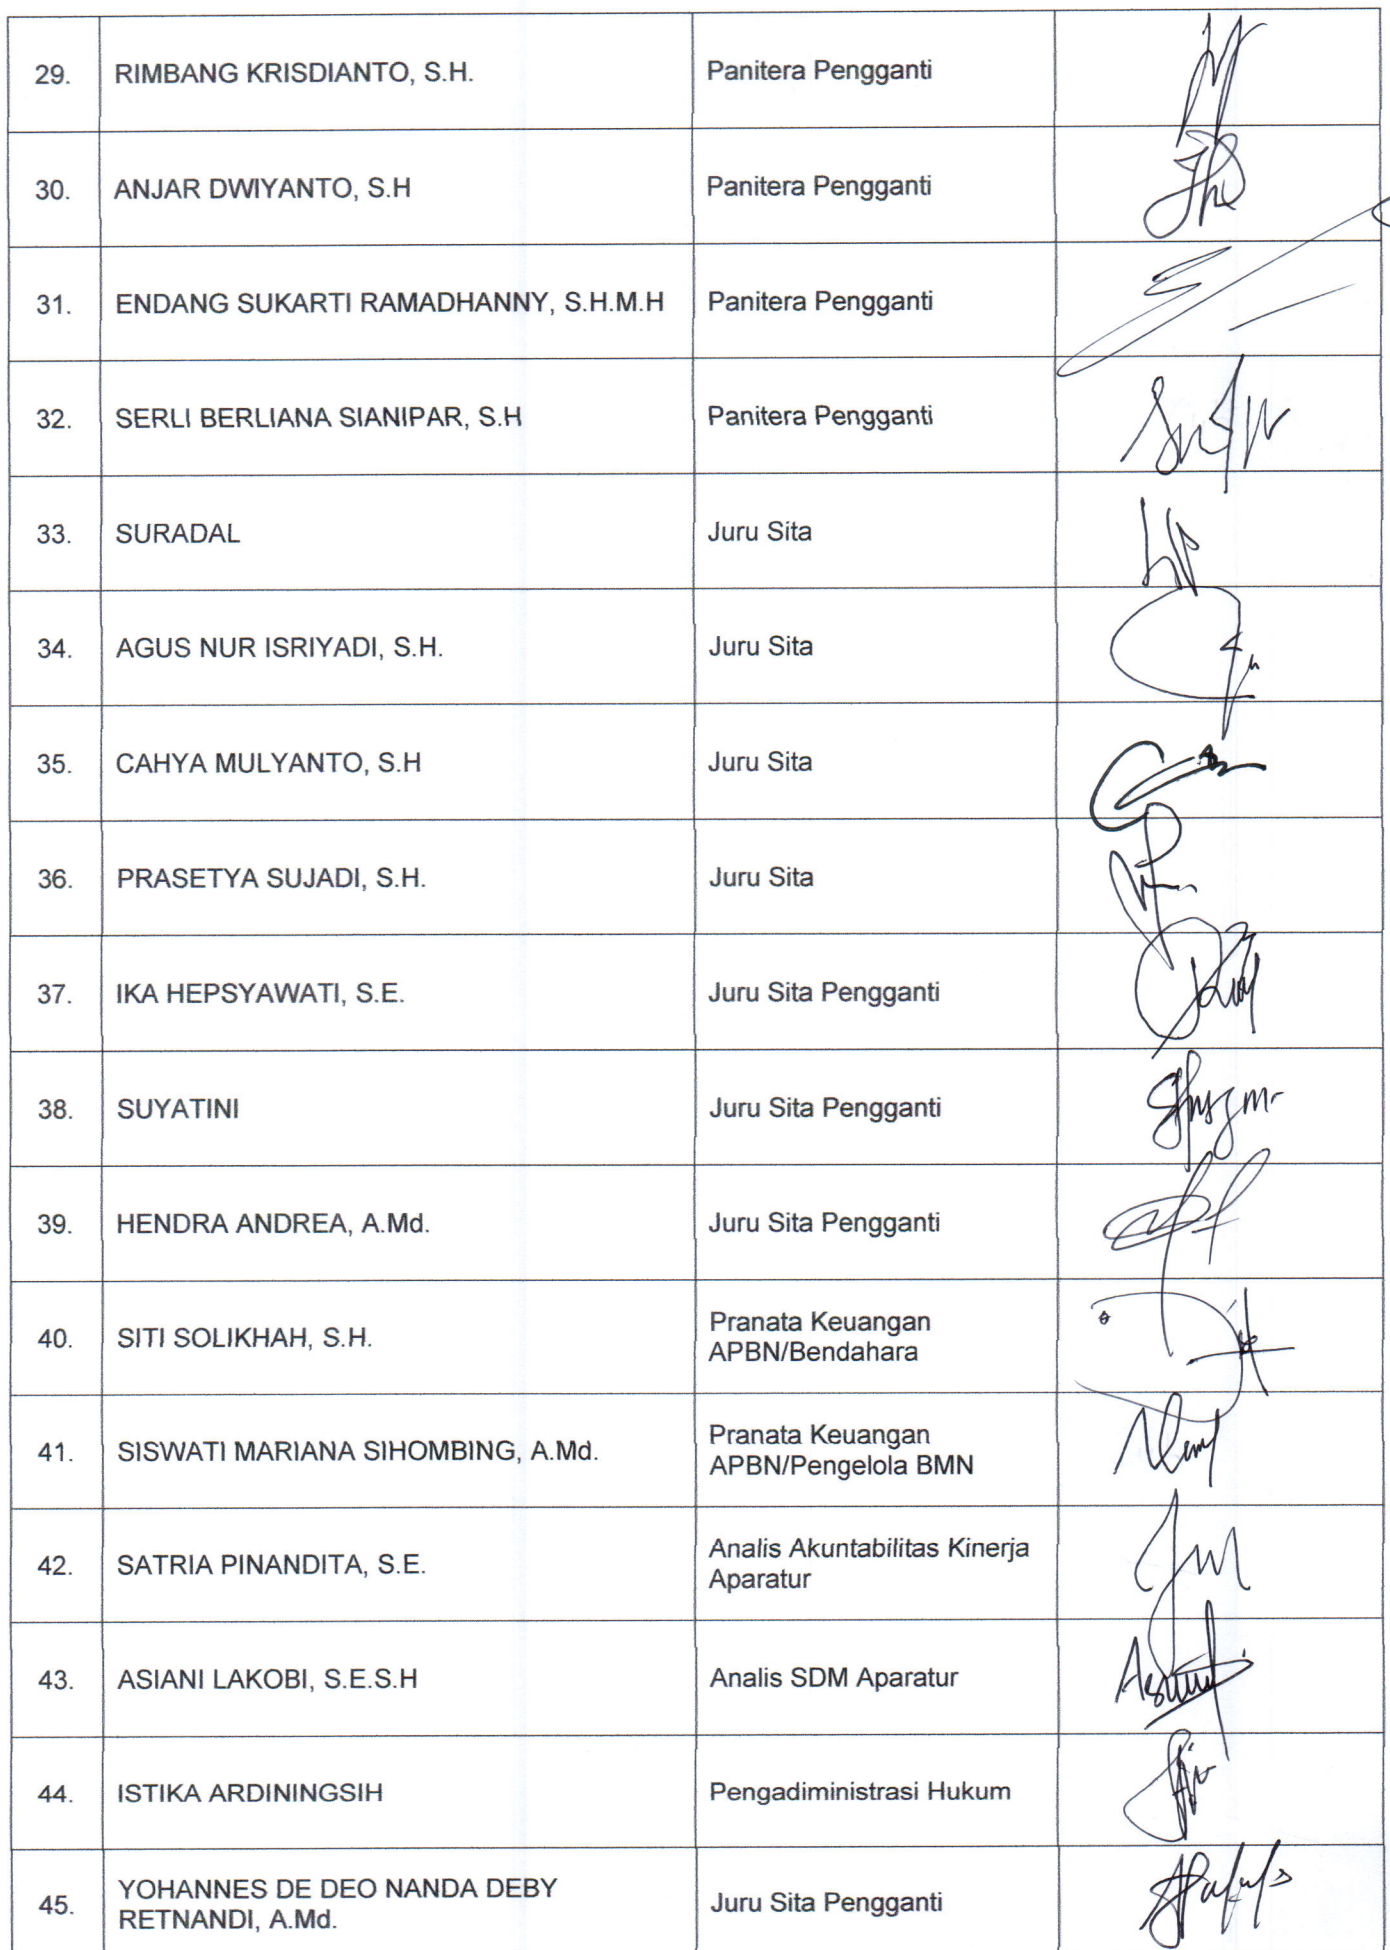 29. RIMBANG KRISDIANTO, S.H. Panitera Pengganti
30. ANJAR DWIYANTO, S.H Panitera Pengganti
31. ENDANG SUKARTI RAMADHANNY, S.H.M.H Panitera Pengganti
32. SERLI BERLIANA SIANIPAR, S.H Panitera Pengganti
33. SURADAL Juru Sita
34. AGUS NUR ISRIYADI, S.H. Juru Sita
35. CAHYA MULYANTO, S.H Juru Sita
36. PRASETYA SUJADI, S.H. Juru Sita
37. IKA HEPSYAWATI, S.E. Juru Sita Pengganti
38. SUYATINI Juru Sita Pengganti
39. HENDRA ANDREA, A.Md. Juru Sita Pengganti
40. SITI SOLIKHAH, S.H. Pranata Keuangan
APBN/Bendahara
41. SISWATI MARIANA SIHOMBING, A.Md. Pranata Keuangan
APBN/Pengelola BMN
42. SATRIA PINANDITA, S.E. Analis Akuntabilitas Kinerja
Aparatur
43. ASIANI LAKOBI, S.E.S.H Analis SDM Aparatur
44. ISTIKA ARDININGSIH Pengadiministrasi Hukum
45. YOHANNES DE DEO NANDA DEBY
RETNANDI, A.Md. Juru Sita Pengganti